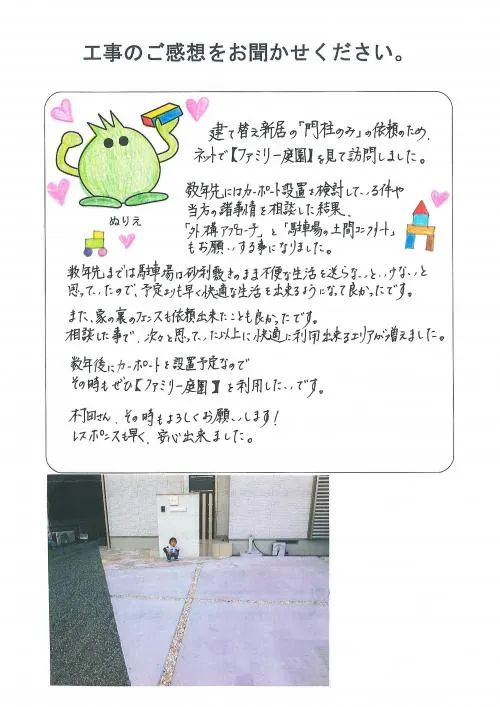 工事のご感想をお聞かせください。
建て替え新居の「門柱のみ」の依頼のため、
ネットで【ファミリー庭園】を見て訪問しました。
数年先にはカーポート設置を検討している件や
当方の諸事情を相談した結果、
「外構アプローチ」と「駐車場の土間コンクリート」
もお願いする事になりました。
ぬりえ
数年先までは駐車場は砂利敷きのまま不便な生活を送らないといけないと
思っていたので、予定よりも早く快適な生活を出来るようになって良かったです。
また、家の裏のフェンスも依頼出来たことも良かったです。
相談した事で、次々と思っていた以上に快適に利用出来るエリアが増えました。
数年後にカーポートを設置予定なので
その時もぜひ【ファミリー庭園】を利用したいです。
村田さん、その時もよろしくお願いします!
レスポンスも早く、安心出来ました。